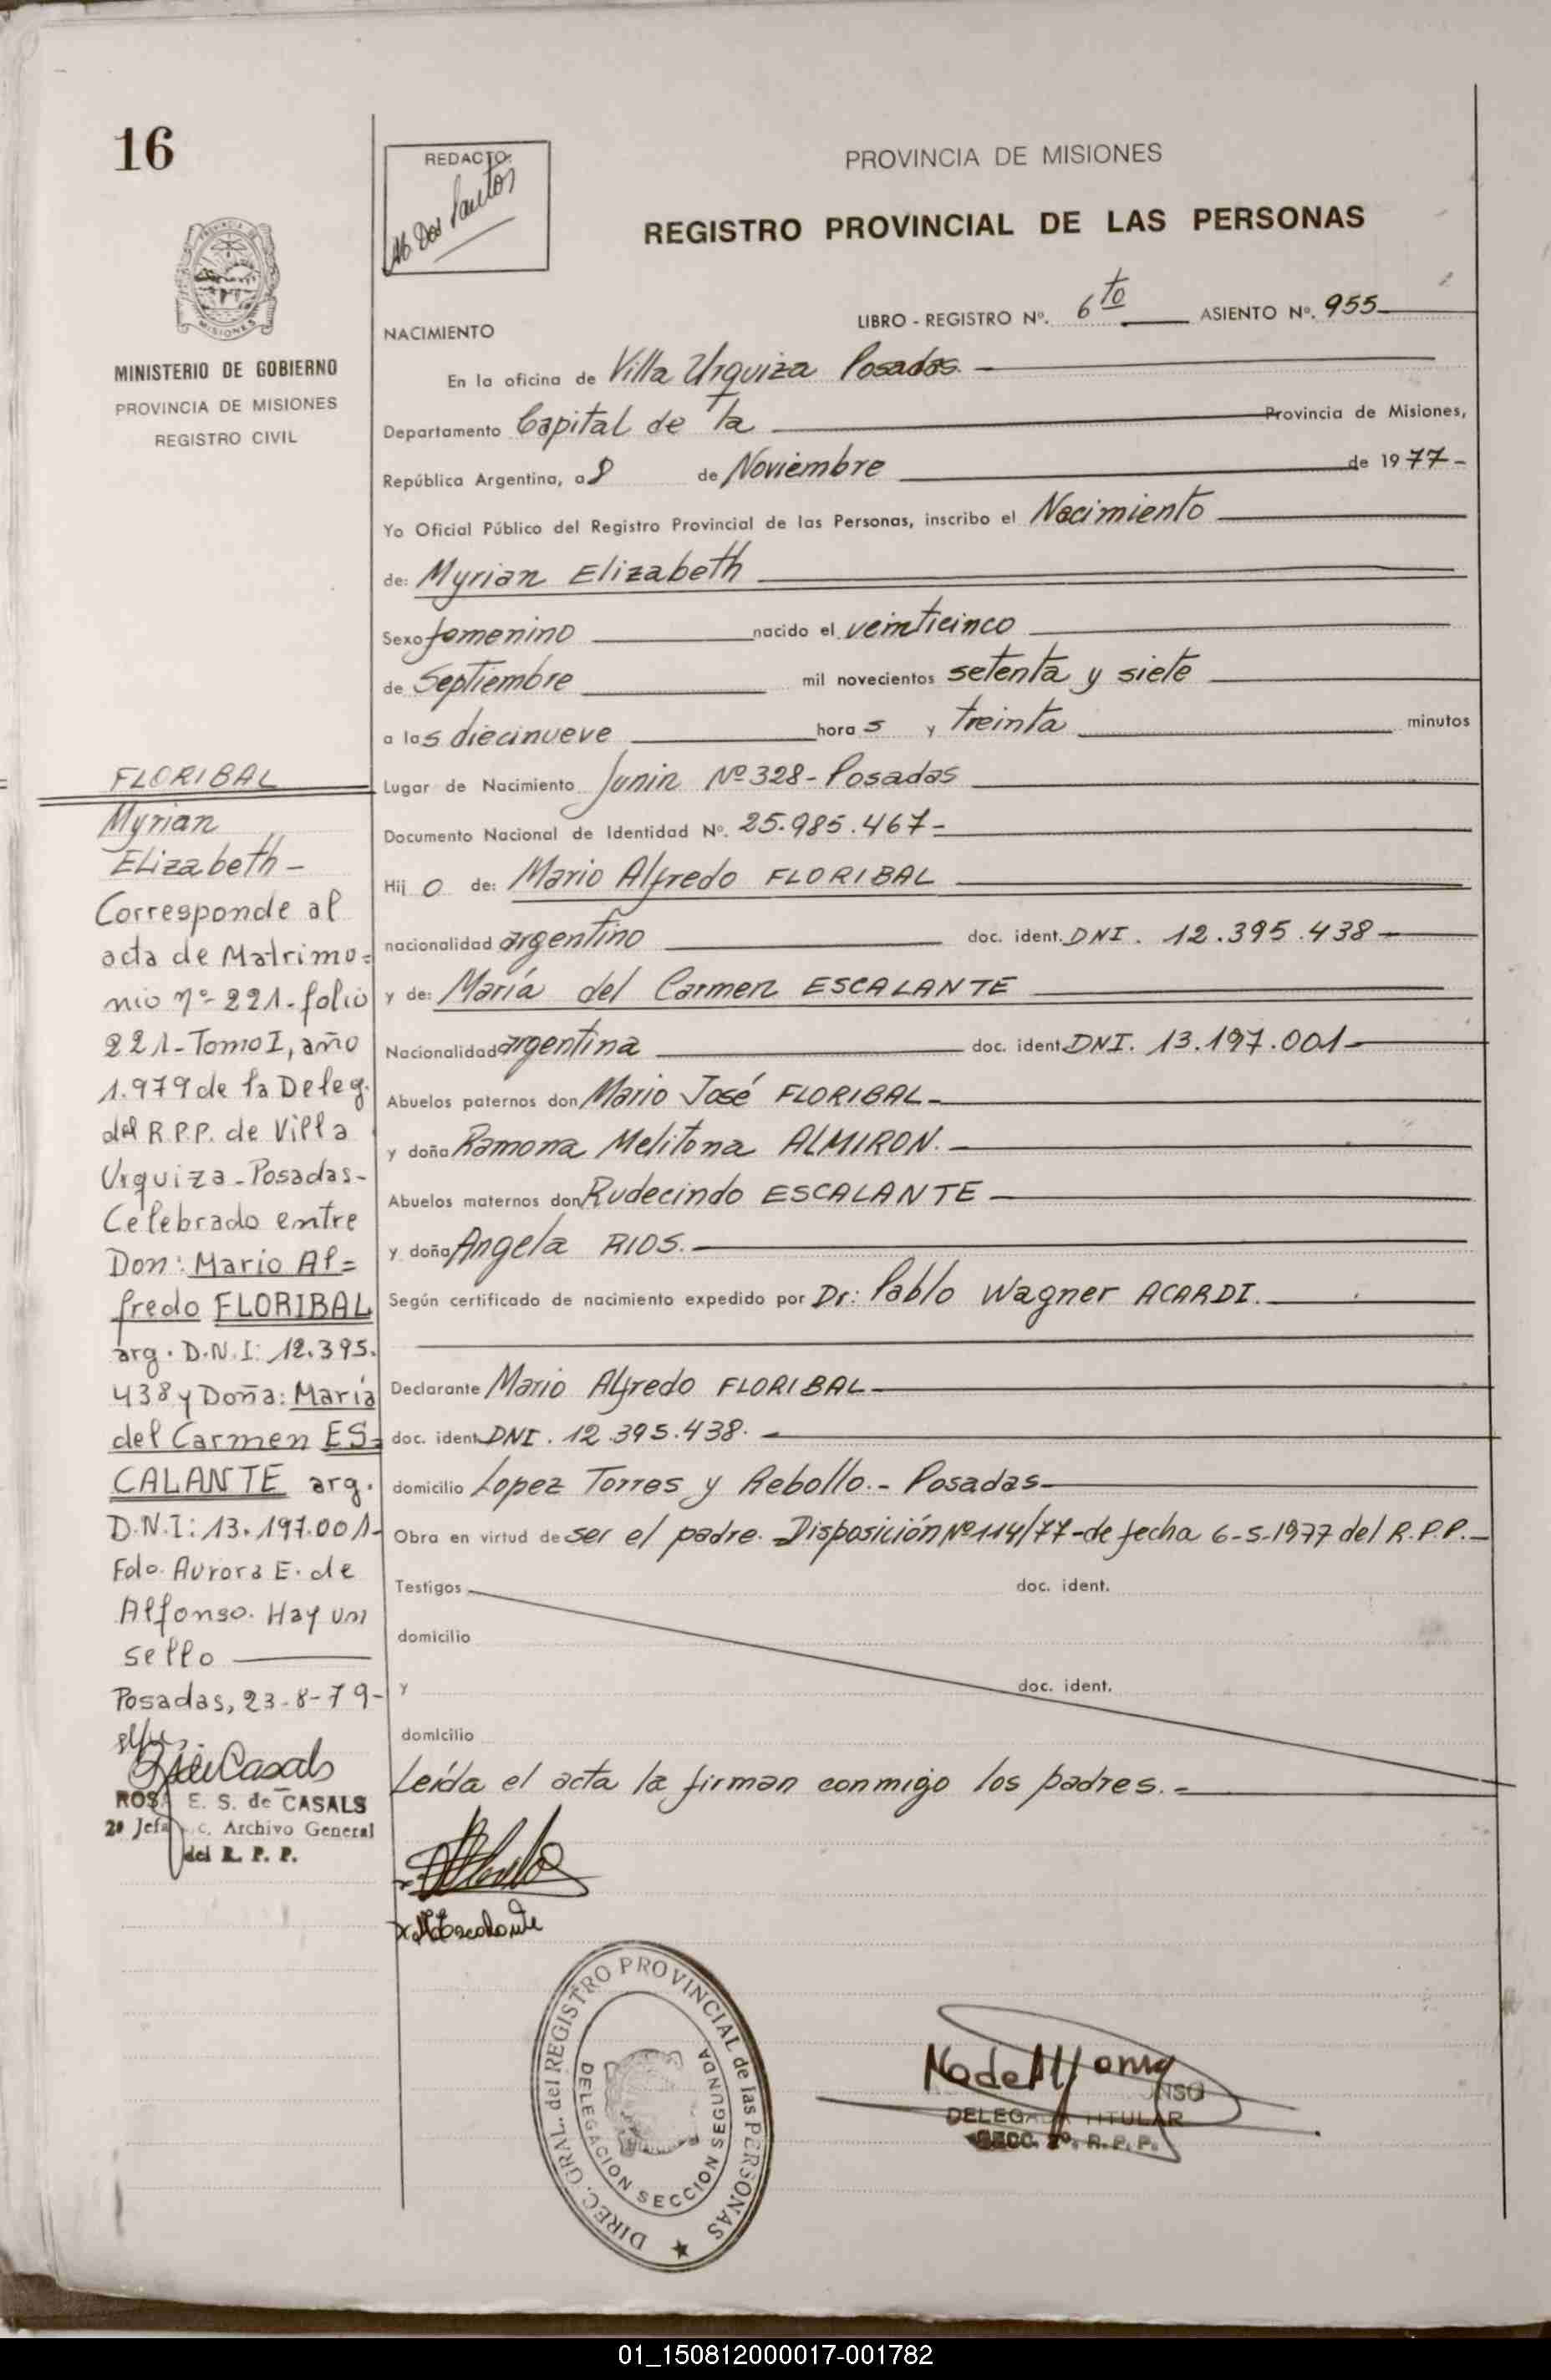 16
REDACTO:
M. Dos Santos
PROVINCIA DE MISIONES
REGISTRO PROVINCIAL DE LAS PERSONAS
MISIONES
MINISTERIO DE GOBIERNO
PROVINCIA DE MISIONES
REGISTRO CIVIL
LIBRO - REGISTRO Nº. 6to ASIENTO Nº. 955
NACIMIENTO
En la oficina de Villa Urquiza Posadas.
Departamento Capital de la Provincia de Misiones,
República Argentina, a 8 de Noviembre de 1977-
Yo Oficial Público del Registro Provincial de las Personas, inscribo el Nacimiento
de: Myrian Elizabeth
Sexo femenino nacido el veinticinco
de Septiembre mil novecientos setenta y siete
a las diecinueve horas y treinta minutos
Lugar de Nacimiento Junin Nº 328- Posadas
Documento Nacional de Identidad Nº. 25.985.467-
Hij o de: Mario Alfredo FLORIBAL
nacionalidad argentino doc. ident. DNI. 12.395.438
y de: María del Carmen ESCALANTE
Nacionalidad argentina doc. ident. DNI. 13.197.001-
Abuelos paternos don Mario José FLORIBAL-
y doña Ramona Melitona ALMIRON.-
Abuelos maternos don Rudecindo ESCALANTE
y doña Angela RIOS.
Según certificado de nacimiento expedido por Dr: Pablo Wagner ACARDI.
Declarante Mario Alfredo FLORIBAL
doc. ident. DNI. 12.395.438.
domicilio Lopez Torres y Rebollo.- Posadas-
Obra en virtud de ser el padre. Disposición Nº 114/77-de fecha 6-5-1977 del R.P.P.-
Testigos doc. ident.
domicilio
y doc. ident.
domicilio
Leída el acta la firman conmigo los padres.-
FLORIBAL
Myrian
Elizabeth-
Corresponde al
acta de Matrimo=
nio nº 221-folio
221-Tomo I, año
1.979 de la Deleg.
del R.P.P. de Villa
Urquiza-Posadas-
Celebrado entre
Don: Mario Al=
fredo FLORIBAL
arg. D.N.I: 12.395.
438 y Doña: María
del Carmen ES=
CALANTE arg.
D.N.I: 13.197.001-
Fdo. Aurora E. de
Alfonso. Hay un
sello
Posadas, 23-8-79-
de Casals
ROSA E. S. de CASALS
2º Jefa c. Archivo General
del R. P. P.
M Escalante
DIREC. GRAL. del REGISTRO PROVINCIAL de las PERSONAS
DELEGACION SECCION SEGUNDA
NSO
DELEGADA TITULAR
SECC. 2º. R. P. P.
01_150812000017-001782